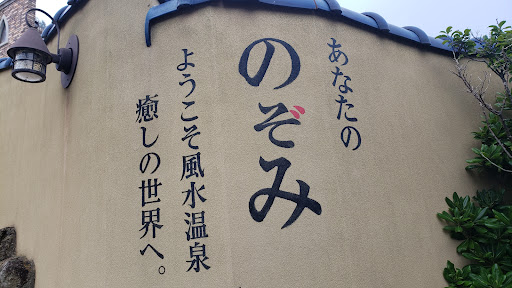 あなたの
のぞみ
ようこそ風水温泉
癒しの世界へ。